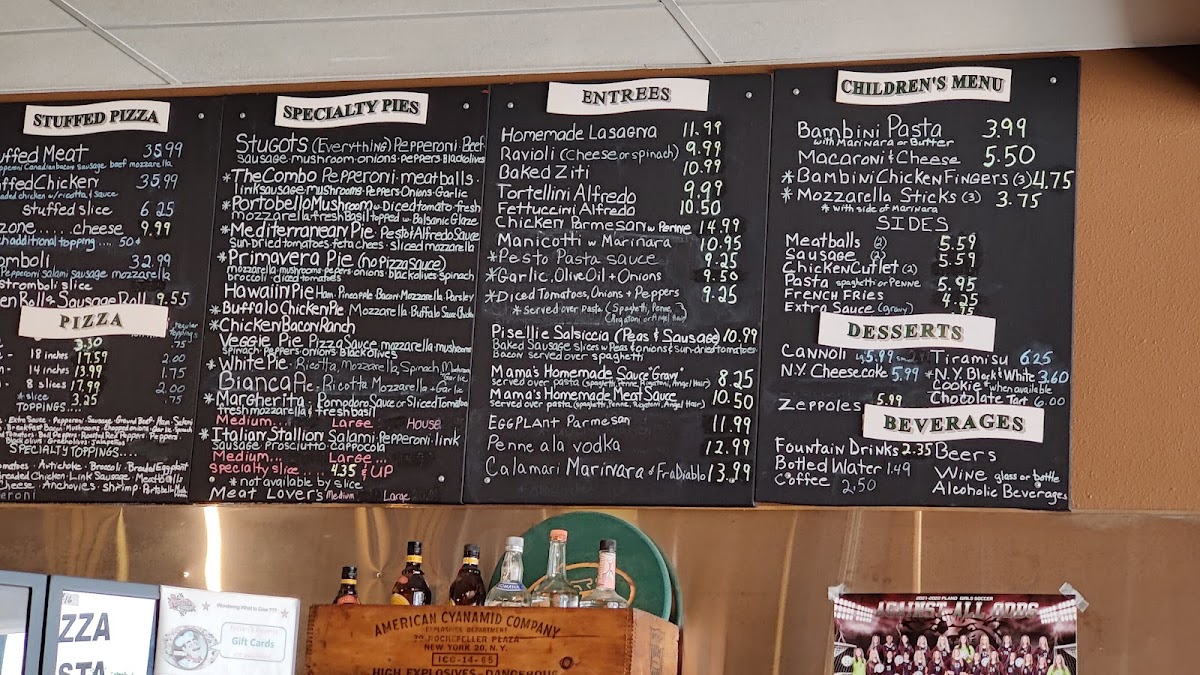 STUFFED PIZZA
uffed Meat 35.99
peroni Canadian bacon sausage beef mozzarella
uffed Chicken 35.99
aded chicken w/ ricotta & sauce
stuffed slice 6.25
zone......cheese 9.99
ch additional topping.... 50¢
omboli 32.99
Pepperoni Salami sausage mozzarella
stromboli slice
en Roll & Sausage Roll 9.55
PIZZA
Regular Toppings
3.30 .75
18 inches 17.59 2.00
14 inches 13.99 1.75
8 slices 17.99 2.00
*slice 3.25 .75
TOPPINGS....
Extra Sauce - Pepperoni - Sausage - Ground Beef
SPECIALTY TOPPINGS....
omatoes - Artichoke - Broccoli - Breaded Eggplant
readed Chicken - Link Sausage - Meatballs
Cheese - Anchovies - shrimp - Portobello Mush
eroni
SPECIALTY PIES
Stugots (Everything) Pepperoni · Beef
sausage · mushroom · onions · peppers · Black olives
*The Combo Pepperoni · meatballs ·
link sausage · mushrooms · Peppers · Onions · Garlic
*Portobello Mushroom w Diced tomato · fresh
mozzarella · fresh Basil topped w Balsamic Glaze
*Mediterranean Pie · Pesto Alfredo Sauce
Sun-dried tomatoes · feta chees · sliced mozzarella
*Primavera Pie (no pizza sauce)
mozzarella · mushrooms · pepers · onions · black olives · spinach
broccoli · diced tomatoes
Hawaiin Pie Ham · Pineapple · Bacon · Mozzarella · Parsley
*Buffalo Chicken Pie Mozzarella · Buffalo Sauce Chicken
*Chicken Bacon Ranch
Veggie Pie Pizza Sauce mozzarella · mushrooms
spinach · Peppers · onions · black olives
*White Pie · Ricotta, Mozzarella, Spinach Mushroom Garlic
Bianca Pie · Ricotta Mozzarella + Garlic
*Margherita · Pomodoro Sauce or Sliced Tomatoes
fresh mozzarella & fresh basil
Medium... Large... House
*Italian Stallion Salami · Pepperoni · link
sausage Prosciutto Cappocola
Medium... Large...
specialty slice..... 4.35 & UP
*not available by slice
Meat Lover's Medium Large
ENTREES
Homemade Lasagna 11.99
Ravioli (Cheese or spinach) 9.99
Baked Ziti 10.99
Tortellini Alfredo 9.99
Fettuccini Alfredo 10.50
Chicken Parmesan w Penne 14.99
Manicotti w Marinara 10.95
*Pesto Pasta sauce 9.25
*Garlic, Olive Oil + Onions 9.50
*Diced Tomatoes, Onions + Peppers 9.25
*served over pasta (Spaghetti, Penne, Rigatoni or Angel Hair)
Pisellie Salsiccia (Peas & Sausage) 10.99
Baked Sausage slices w Peas & onions & sun-dried tomatoes
Bacon served over spaghetti
Mama's Homemade Sauce "Gravy" 8.25
served over pasta (spaghetti, Penne, Rigatoni, Angel Hair)
Mama's Homemade Meat Sauce 10.50
served over pasta (spaghetti, Penne, Rigatoni, Angel Hair)
Eggplant Parmesan 11.99
Penne ala vodka 12.99
Calamari Marinara & Fra Diablo 13.99
CHILDREN'S MENU
Bambini Pasta 3.99
with Marinara or Butter
Macaroni & Cheese 5.50
*Bambini Chicken Fingers (3) 4.75
*Mozzarella Sticks (3) 3.75
*with side of marinara
SIDES
Meatballs (2) 5.59
Sausage (2) 5.59
Chicken Cutlet (2)
Pasta spaghetti or Penne 5.95
French Fries 4.25
Extra Sauce (gravy) .75
DESSERTS
Cannoli Lg 5.99 sm
Tiramisu 6.25
N.Y. Cheesecake 5.99
*N.Y. Black & White 3.60
Cookie *when available
Zeppoles 5.99
Chocolate Tart 6.00
BEVERAGES
Fountain Drinks 2.35
Beers
Bottled Water 1.49
Wine glass or bottle
Coffee 2.50
Alcoholic Beverages
ZZA
STA
Wondering What to Give ???
Gift Cards
AMERICAN CYANAMID COMPANY
EXPLOSIVES DEPARTMENT
30 ROCKEFELLER PLAZA
NEW YORK 20, N.Y.
ICC-14-65
HIGH EXPLOSIVES-DANGEROUS
2021-2022 PLANO GIRLS SOCCER
AGAINST ALL ODDS